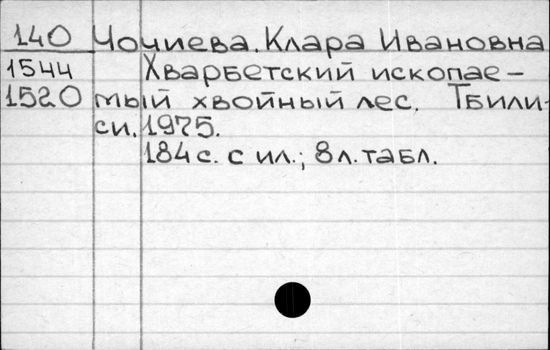 140 Чочиева. Клара Ивановна
1544 Хварбетский ископае-
1520 мый хвойный лес. Тбили-
си, 1975.
184 с. с ил.; 8 л. табл.